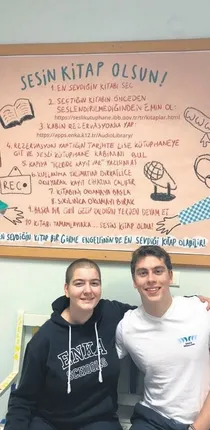 SESİN KİTAP OLSUN!
1. EN SEVDİĞİN KİTABI SEÇ
2. SEÇTİĞİN KİTABIN ÖNCEDEN
SESLENDİRİLMEDİĞİNDEN EMİN OL:
3. KABİN REZERVASYONU YAP:
https://apps.enka.k12.tr/AudioLibrary/
4. REZERVASYON YAPTIĞIN TARİHTE LİSE KÜTÜPHANEYE
GİT VE SESLİ KÜTÜPHANE KABİNİNİ BUL
5. KAPIYA "İÇERDE KAYIT VAR" YAZILARINI
OKUYARAK KAYIT CİHAZINI ÇALIŞTIR
7. KİTABINI OKUMAYA BAŞLA
8. SIKILINCA OKUMAYI BIRAK
9. BAŞKA BİR GÜN GELİP KALDIĞIN YERDEN DEVAM ET
10. KİTABI TAMAMLAYINCA ... SESİN KİTAP OLSUN!
EN SEVDİĞİN KİTAP BİR GÖRME ENGELLİNİN DE EN SEVDİĞİ KİTAP OLABİLİR!
REC
ENKA
SCHOOLS